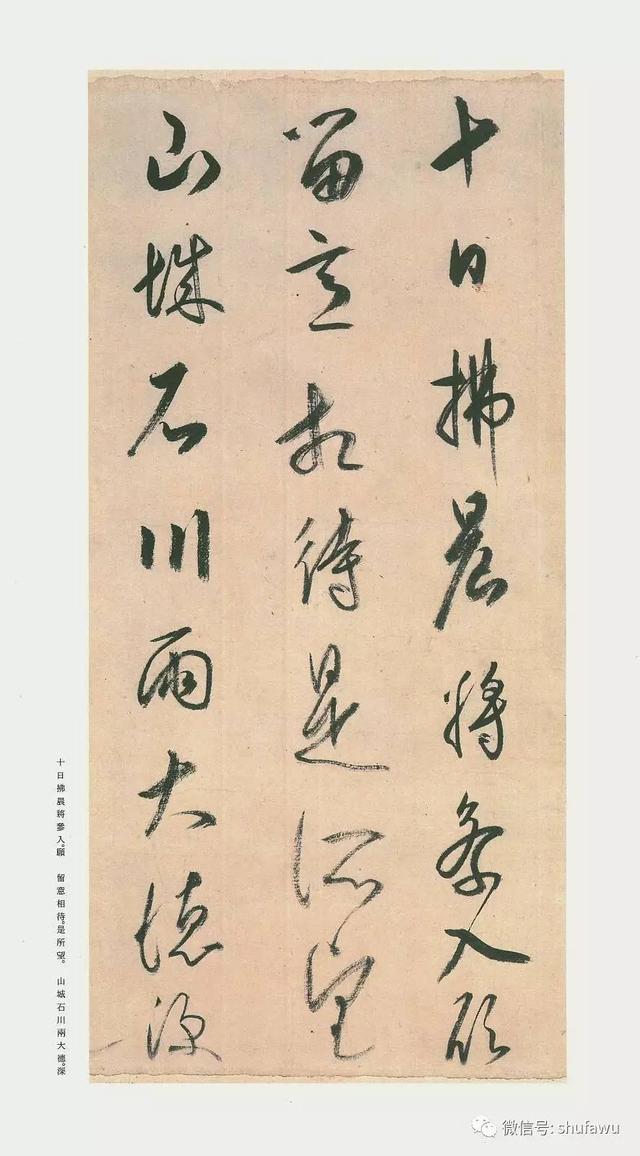 十日拂晨將參入願
留意相待是所望
山城石川兩大德深
十日拂晨將參入。願　留意相待。是所望。　山城石川兩大德。深
微信号: shufawu